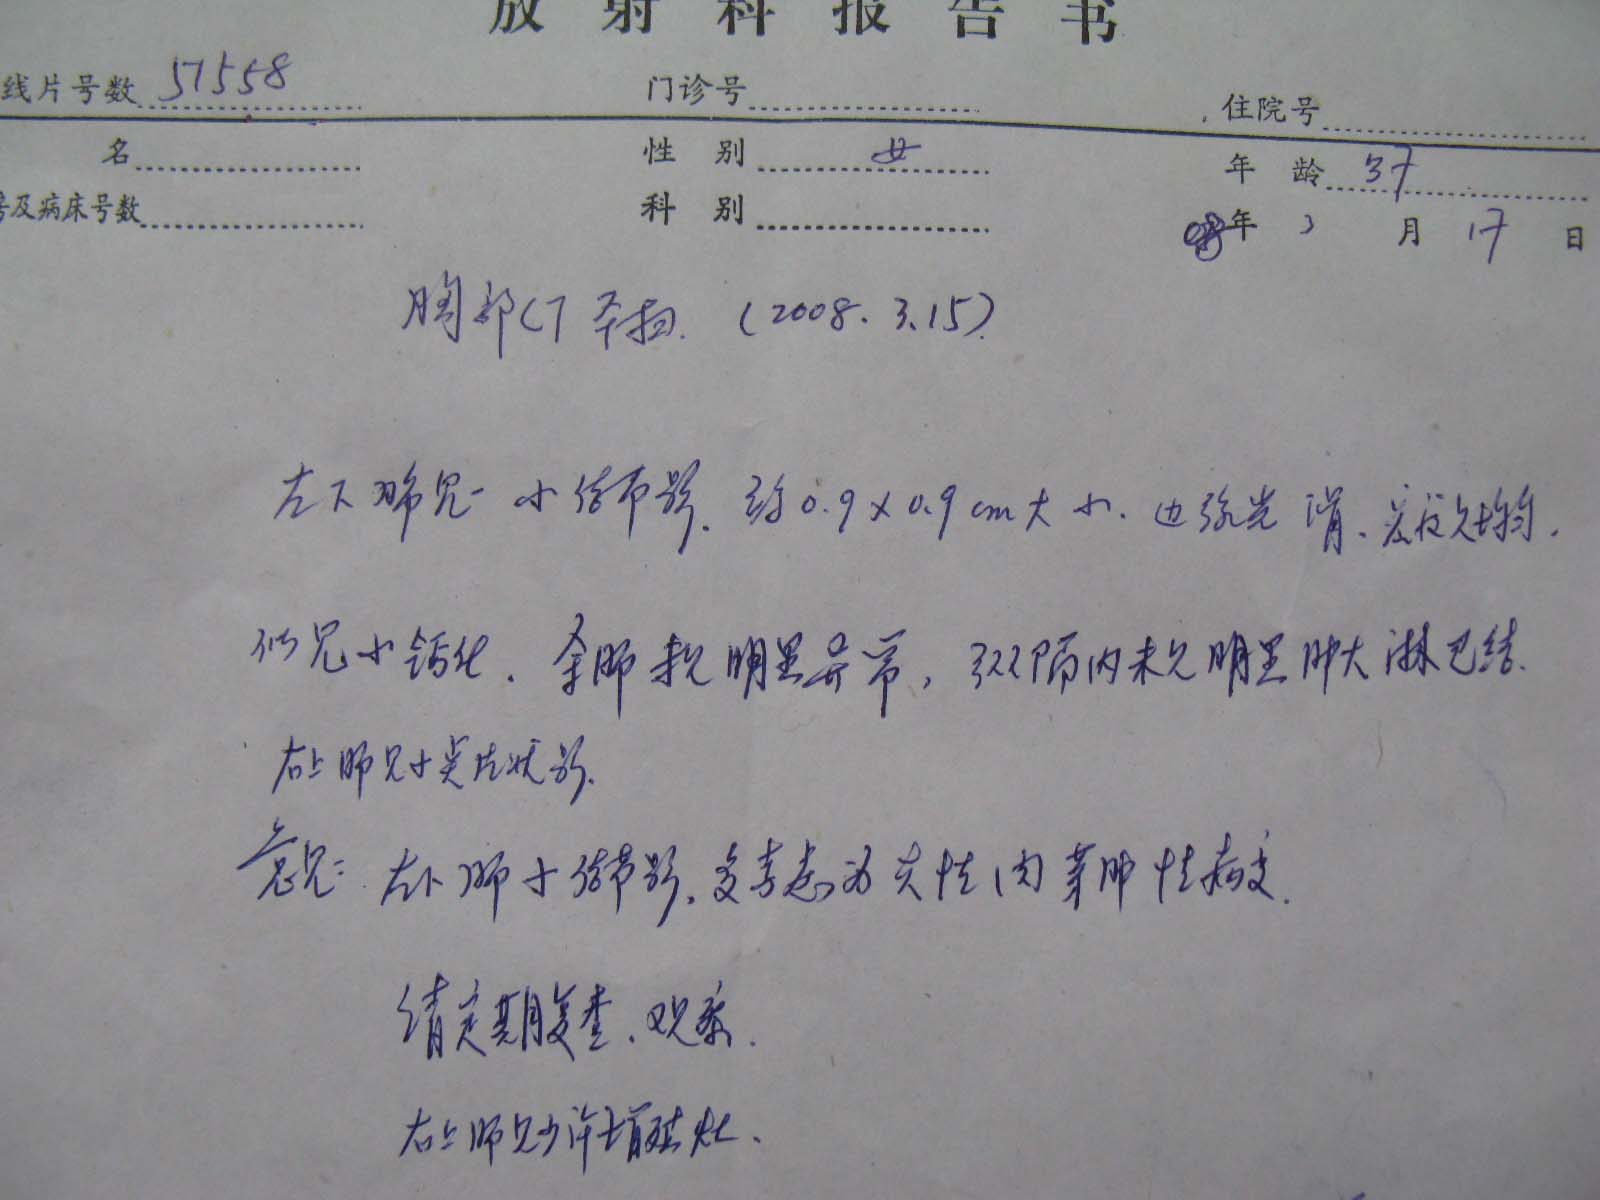 放射科报告书
线片号数 57558 门诊号 住院号
名 性别 女 年龄 37
及病床号数 科别 08年3月17日
胸部CT平扫.(2008.3.15)
左下肺见一小结节影,约0.9×0.9cm大小.边缘光滑、密度欠均匀.
似见小钙化.余肺未见明显异常,纵隔内未见明显肿大淋巴结.
右上肺见小点片状影.
意见:左下肺小结节影,多考虑为良性肉芽肿性病变.
请定期复查、观察.
右上肺见少许增殖灶.